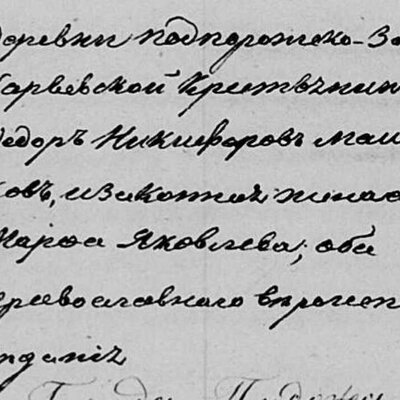 деревни Подпорожско-За
барьевской Крестьянин
Федоръ Никифоровъ Маш
ковъ, и законная жена е
Марѳа Яковлева; оба
православнаго вѣроисп
оведанія